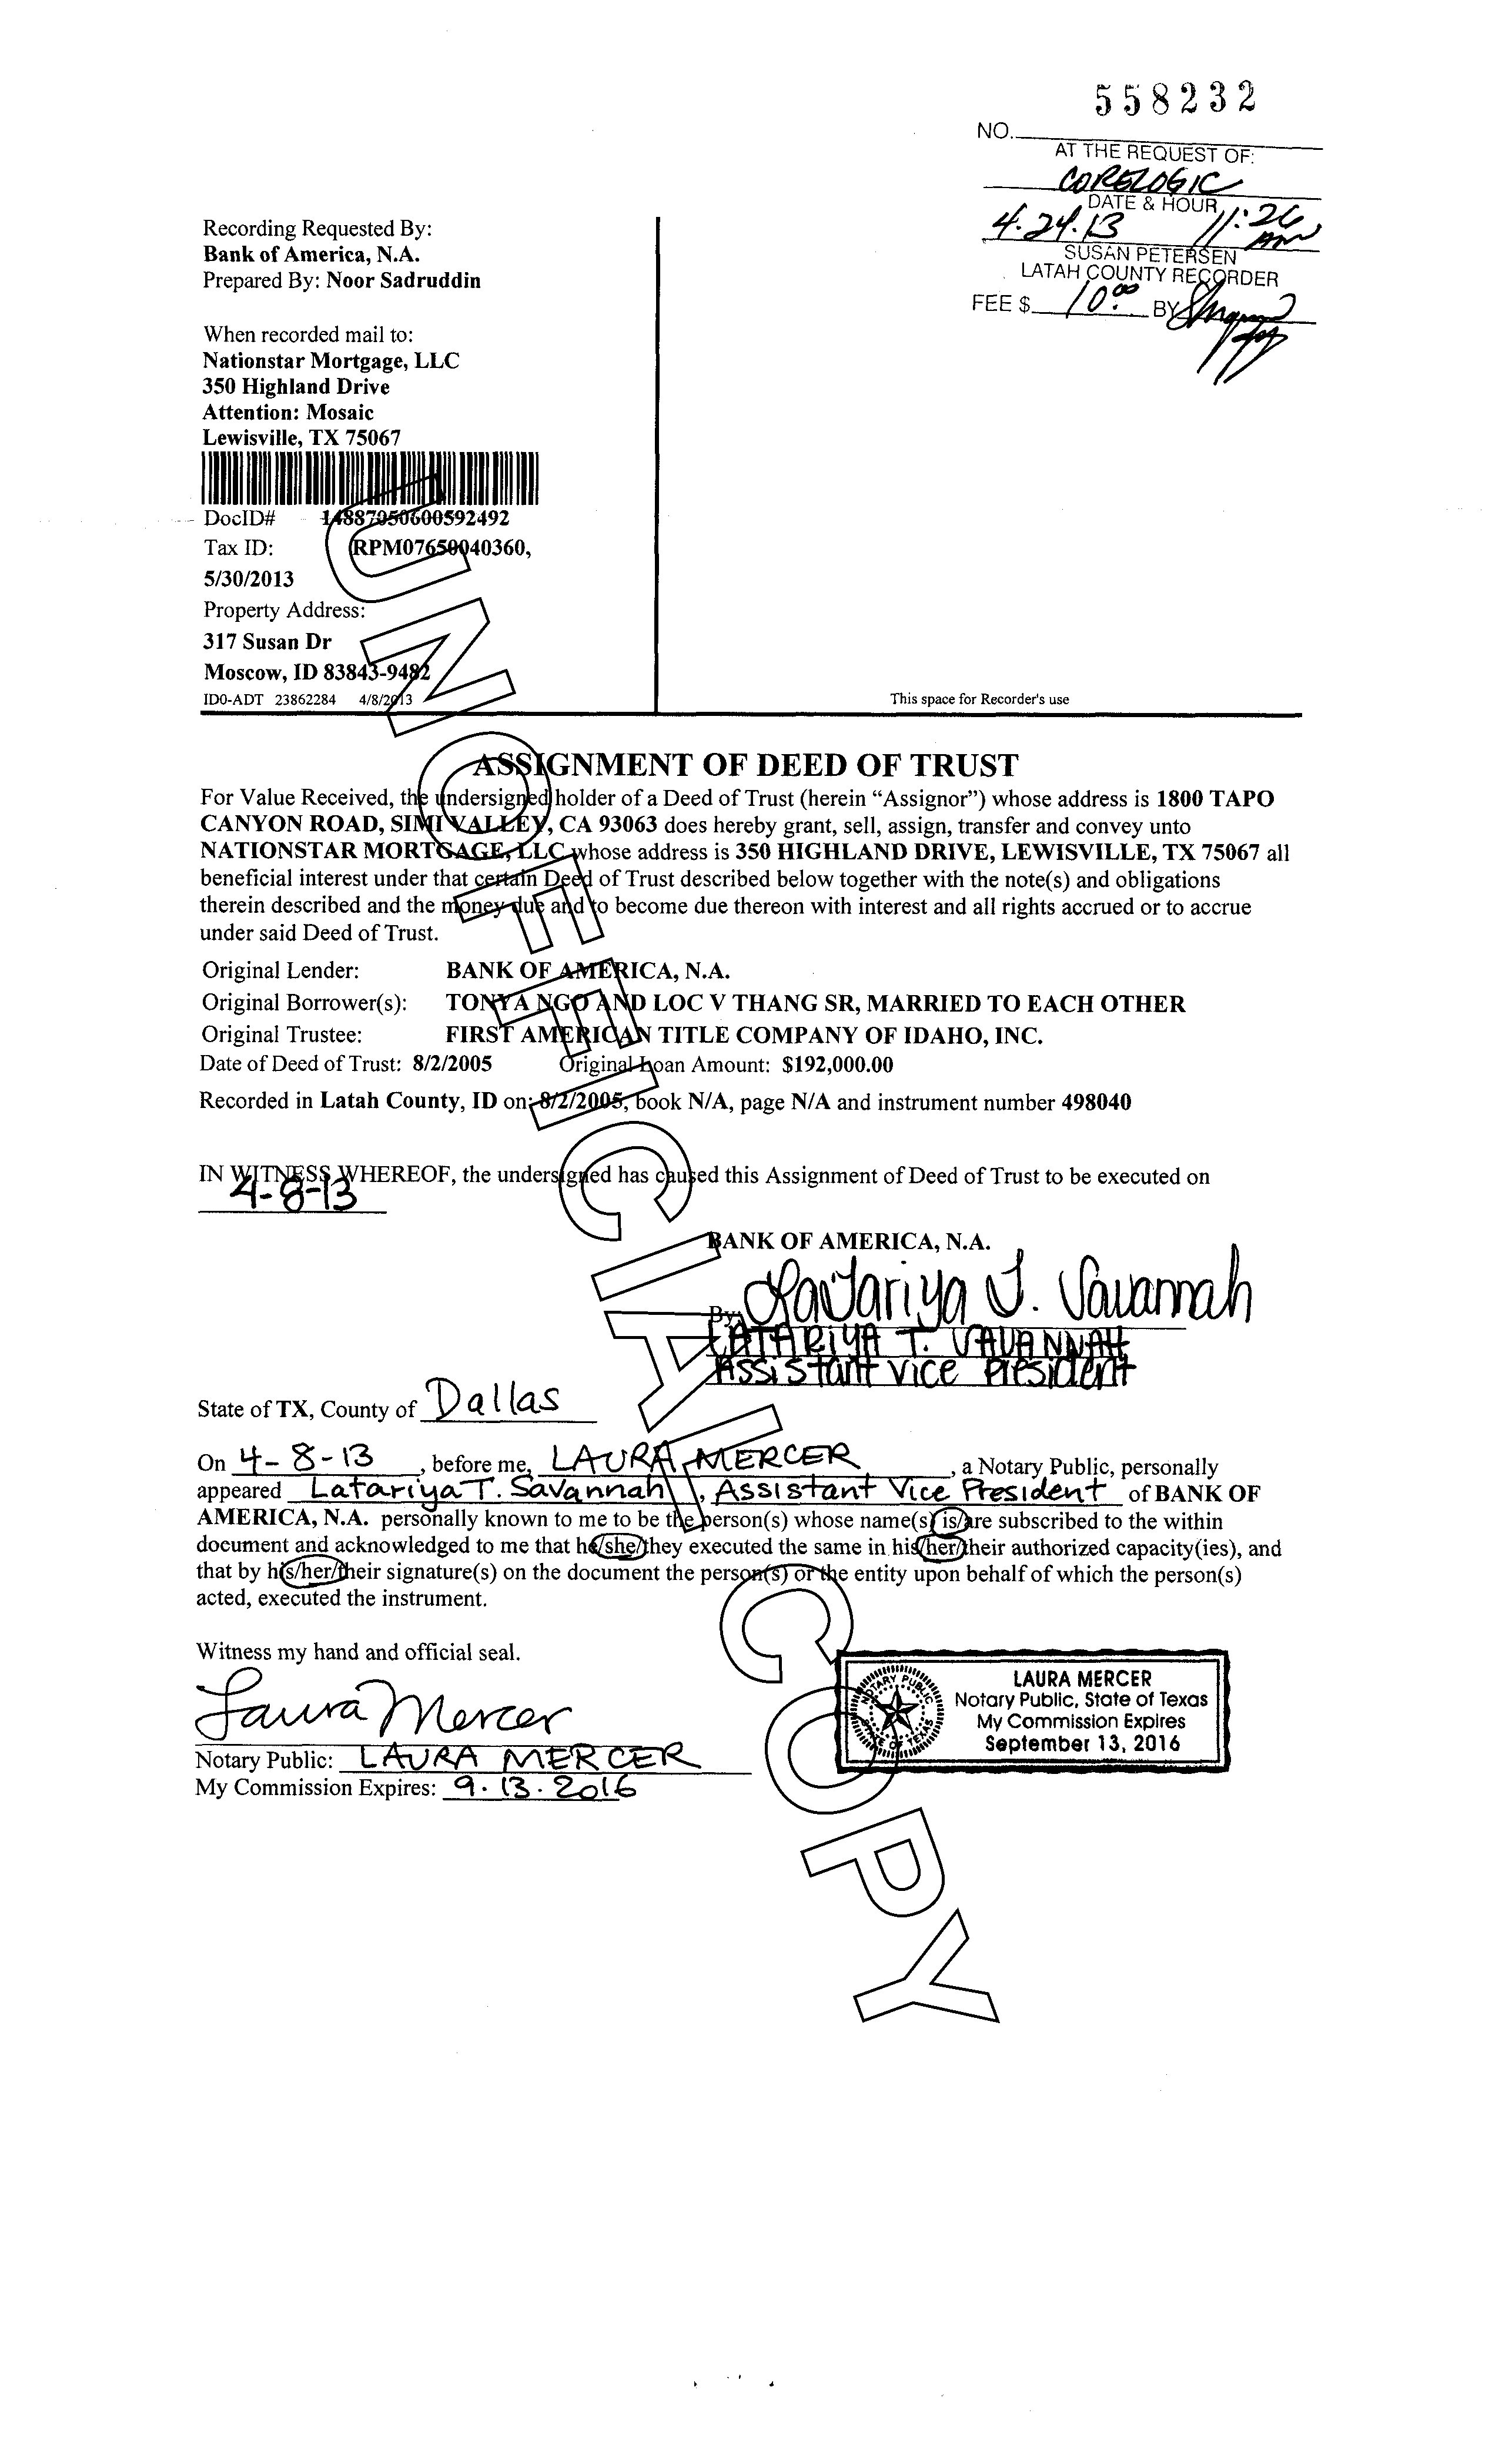 558232
NO.
AT THE REQUEST OF:
CORELOGIC
DATE & HOUR
4.24.13 11:26 AM
SUSAN PETERSEN
LATAH COUNTY RECORDER
FEE $ 10.00 BY
Recording Requested By:
Bank of America, N.A.
Prepared By: Noor Sadruddin
When recorded mail to:
Nationstar Mortgage, LLC
350 Highland Drive
Attention: Mosaic
Lewisville, TX 75067
DocID# 14887050600592492
Tax ID: RPM07650040360,
5/30/2013
Property Address:
317 Susan Dr
Moscow, ID 83843-9482
ID0-ADT 23862284 4/8/2013
This space for Recorder's use
ASSIGNMENT OF DEED OF TRUST
For Value Received, the undersigned holder of a Deed of Trust (herein “Assignor”) whose address is 1800 TAPO
CANYON ROAD, SIMI VALLEY, CA 93063 does hereby grant, sell, assign, transfer and convey unto
NATIONSTAR MORTGAGE, LLC whose address is 350 HIGHLAND DRIVE, LEWISVILLE, TX 75067 all
beneficial interest under that certain Deed of Trust described below together with the note(s) and obligations
therein described and the money due and to become due thereon with interest and all rights accrued or to accrue
under said Deed of Trust.
Original Lender: BANK OF AMERICA, N.A.
Original Borrower(s): TONYA NGO AND LOC V THANG SR, MARRIED TO EACH OTHER
Original Trustee: FIRST AMERICAN TITLE COMPANY OF IDAHO, INC.
Date of Deed of Trust: 8/2/2005 Original Loan Amount: $192,000.00
Recorded in Latah County, ID on: 8/2/2005, book N/A, page N/A and instrument number 498040
IN WITNESS WHEREOF, the undersigned has caused this Assignment of Deed of Trust to be executed on
4-8-13
BANK OF AMERICA, N.A.
By: Latariya T. Savannah
LATARIYA T. SAVANNAH
Assistant Vice President
State of TX, County of Dallas
On 4-8-13, before me, LAURA MERCER, a Notary Public, personally
appeared Latariya T. Savannah, Assistant Vice President of BANK OF
AMERICA, N.A. personally known to me to be the person(s) whose name(s) is/are subscribed to the within
document and acknowledged to me that he/she/they executed the same in his/her/their authorized capacity(ies), and
that by his/her/their signature(s) on the document the person(s) or the entity upon behalf of which the person(s)
acted, executed the instrument.
Witness my hand and official seal.
Laura Mercer
Notary Public: LAURA MERCER
My Commission Expires: 9.13.2016
NOTARY PUBLIC
STATE OF TEXAS
LAURA MERCER
Notary Public, State of Texas
My Commission Expires
September 13, 2016
UNOFFICIAL COPY